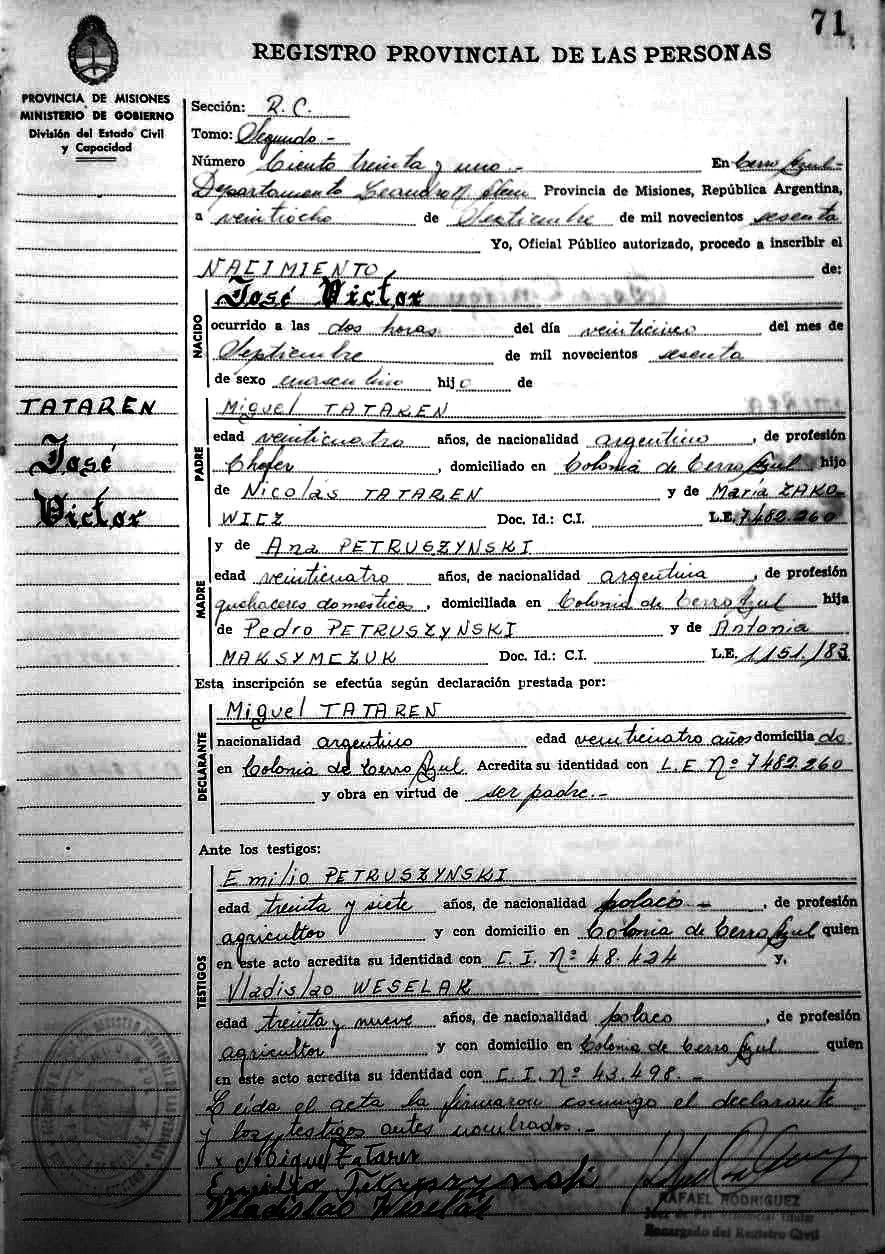 71
REGISTRO PROVINCIAL DE LAS PERSONAS
PROVINCIA DE MISIONES
MINISTERIO DE GOBIERNO
División del Estado Civil
y Capacidad
TATAREN
José
Victor
Sección: R. C.
Tomo: Segundo -
Número Ciento treinta y uno.- En Cerro Azul-
Departamento Leandro N. Alem Provincia de Misiones, República Argentina,
a veintiocho de Septiembre de mil novecientos sesenta
Yo, Oficial Público autorizado, procedo a inscribir el
NACIMIENTO de:
NACIDO
José Victor
ocurrido a las dos horas del día veinticinco del mes de
Septiembre de mil novecientos sesenta
de sexo masculino hijo de
PADRE
Miguel TATAREN
edad veinticuatro años, de nacionalidad argentino, de profesión
Chofer, domiciliado en Colonia de Cerro Azul hijo
de Nicolás TATAREN y de María ZAKO-
WICZ Doc. Id.: C.I. L.E. 7482.260
MADRE
y de Ana PETRUSZYNSKI
edad veinticuatro años, de nacionalidad argentina, de profesión
quehaceres domesticos, domiciliada en Colonia de Cerro Azul hija
de Pedro PETRUSZYNSKI y de Antonia
MAKSYMCZUK Doc. Id.: C.I. L.E. 1151./83
Esta inscripción se efectúa según declaración prestada por:
DECLARANTE
Miguel TATAREN
nacionalidad argentino edad veinticuatro años domicilia do
en Colonia de Cerro Azul Acredita su identidad con L.E. Nº 7482.260
y obra en virtud de ser padre.-
Ante los testigos:
TESTIGOS
Emilio PETRUSZYNSKI
edad treinta y siete años, de nacionalidad polaco -, de profesión
agricultor y con domicilio en Colonia de Cerro Azul quien
en este acto acredita su identidad con C. I. Nº 48.424 y,
Vladislao WESELAK
edad treinta y nueve años, de nacionalidad polaco, de profesión
agricultor y con domicilio en Colonia de Cerro Azul quien
en este acto acredita su identidad con C. I. Nº 43.498.-
Leída el acta la firmaron conmigo el declarante
y los testigos antes nombrados.-
x Miguel Tataren
Emilio Petruszynski
Vladislao Weselak
RAFAEL RODRIGUEZ
Encargado del Registro Civil